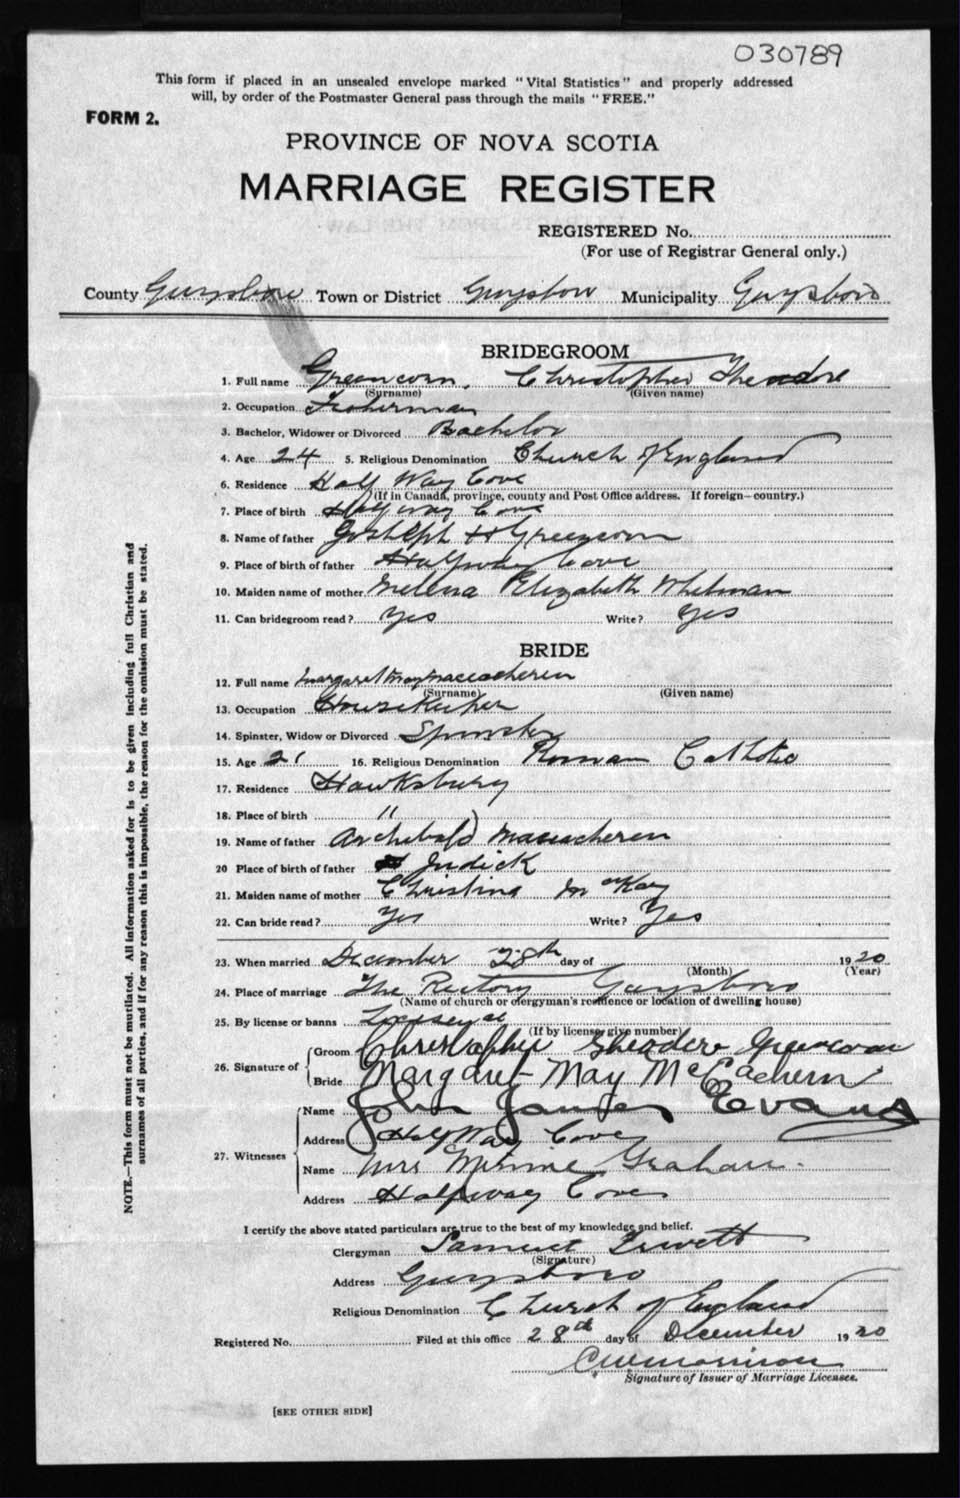 030789
This form if placed in an unsealed envelope marked "Vital Statistics" and properly addressed
will, by order of the Postmaster General pass through the mails "FREE."
FORM 2.
PROVINCE OF NOVA SCOTIA
MARRIAGE REGISTER
REGISTERED No.
(For use of Registrar General only.)
County Guysboro Town or District Guysboro Municipality Guysboro
BRIDEGROOM
1. Full name Greencorn, Christopher Theodore
(Surname) (Given name)
2. Occupation Fisherman
3. Bachelor, Widower or Divorced Bachelor
4. Age 24 5. Religious Denomination Church of England
6. Residence Half Way Cove
(If in Canada, province, county and Post Office address. If foreign—country.)
7. Place of birth Halfway Cove
8. Name of father H Greencorn
9. Place of birth of father Halfway Cove
10. Maiden name of mother Elizabeth Whitman
11. Can bridegroom read? Yes Write? Yes
BRIDE
12. Full name Margaret May Maceacheren
(Surname) (Given name)
13. Occupation Housekeeper
14. Spinster, Widow or Divorced Spinster
15. Age 21 16. Religious Denomination Roman Catholic
17. Residence Hawksbury
18. Place of birth "
19. Name of father Archebald Maceacheren
20 Place of father Judick
21. Maiden name of mother Christina McKay
22. Can bride read? Yes Write? Yes
23. When married December 28th day of 1920
(Month) (Year)
24. Place of marriage The Rectory Guysboro
(Name of church or clergyman's residence or location of dwelling house)
25. By license or banns
(If by license, give number)
26. Signature of Groom Christopher Theodore Greencorn
Bride Margaret May McEachern
27. Witnesses
Name John James Evans
Address Half Way Cove
Name Mrs Minnie Graham.
Address Halfway Cove
NOTE.—This form must not be mutilated. All information asked for is to be given including full Christian and
surnames of all parties, and if for any reason this is impossible, the reason for the omission must be stated.
I certify the above stated particulars are true to the best of my knowledge and belief.
Clergyman Samuel Trivett
(Signature)
Address Guysboro
Religious Denomination Church of England
Registered No. Filed at this office 28th day of December 1920
C W Morrison
Signature of Issuer of Marriage Licenses.
[SEE OTHER SIDE]